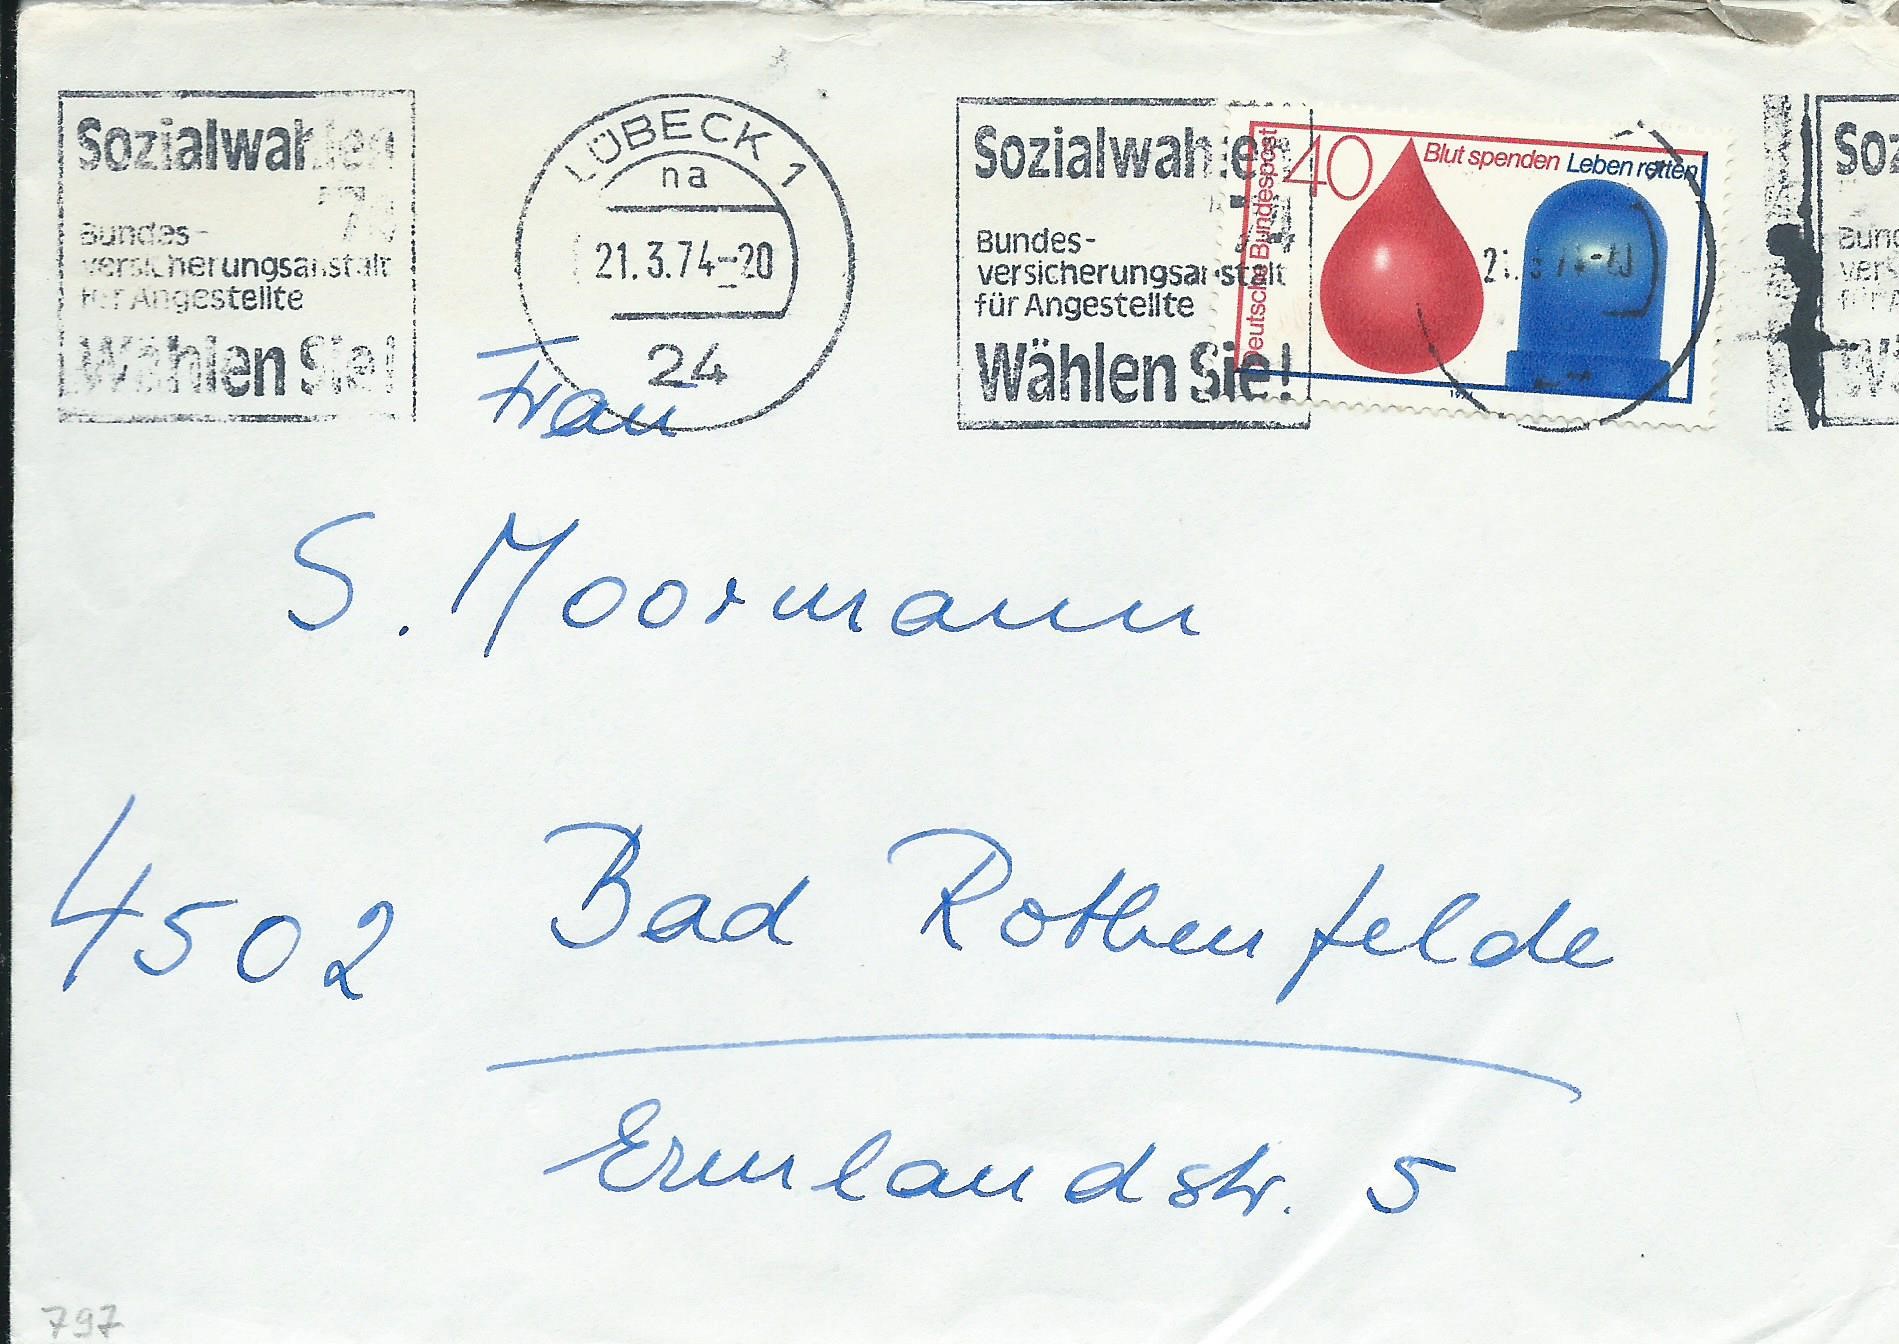 Sozialwahlen
'74
Bundes-
versicherungsanstalt
für Angestellte
Wählen Sie!
LÜBECK 1
na
21.3.74-20
24
Sozialwahlen
'74
Bundes-
versicherungsanstalt
für Angestellte
Wählen Sie!
Deutsche Bundespost
40
Blut spenden Leben retten
Frau
S. Moormann
4502 Bad Rothenfelde
Ermlandstr. 5
797